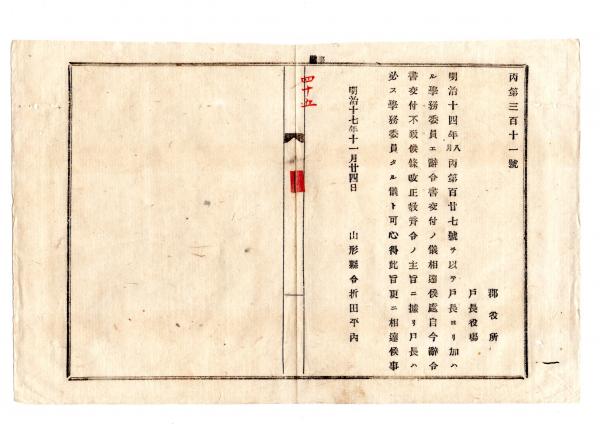 丙第三百十一號
郡役所
戸長役場
明治十四年八月丙第百廿七號ヲ以テ戸長ヨリ加ハ
ル學務委員エ辭令書交付ノ儀相達候處自今辭令
書交付不致候條改正敎育令ノ主旨ニ據リ戸長ハ
必ス學務委員タル儀ト可心得此旨更ニ相達候事
明治十七年十一月廿四日
山形縣令折田平内
四十五
一